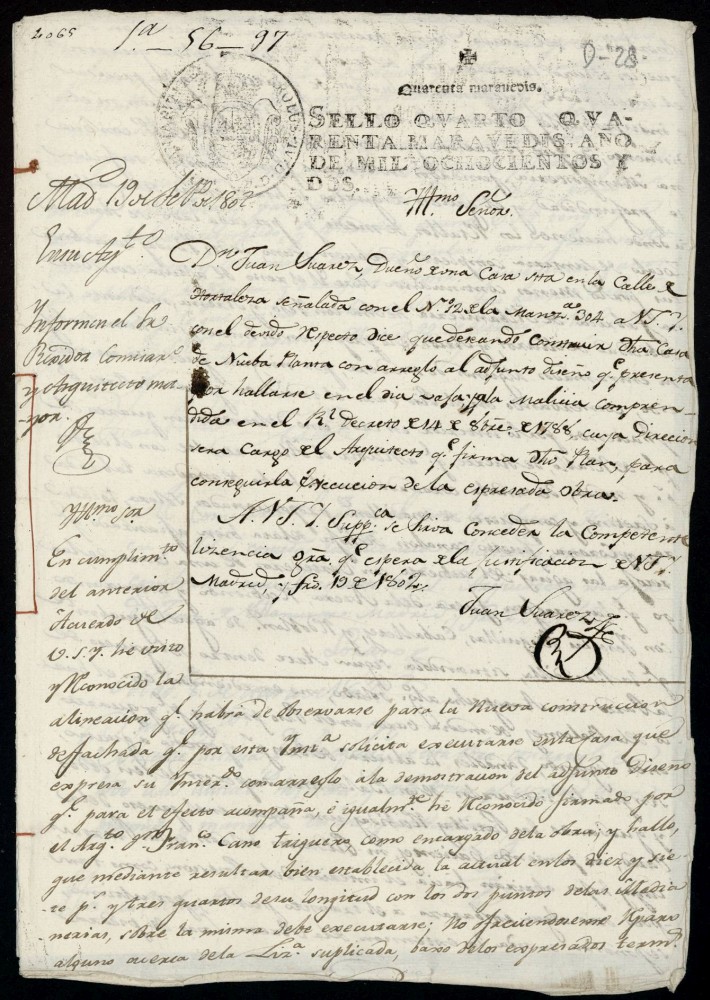 2065
1ª – 56 – 97
0-28
✠
Quarenta maravedis.
SELLO QVARTO, QVA-
RENTA MARAVEDIS, AÑO
DE MIL OCHOCIENTOS Y
DOS.
Madᵈ 19 de de 1802
En su Ayᵗᵒ
Informen el Sʳ
Rexidor Comisarᵒ
y Arquitecto ma
yor.
Yllmo Señor.
Dⁿ Juan Suarez, Dueño de una Casa sita en la Calle de
Hortaleza señalada con el Nº 12 de la Manzª 304 a V.S.Y.
con el devido respecto Dice que deseando Construir dha Casa
de Nueba Planta con arreglo al adjunto diseño qᵉ presenta
por hallarse en el dia vaja y a la Malicia compren-
dida en el Rˡ decreto de 14 de 8bre de 1788, cuya direccion
sera Cargo del Arquitecto qᵉ firma dho Plan, para
conseguir la Execucion de la espresada obra.
A V.S.Y. Suppᶜᵃ se sirva Conceder la Competente
lizencia gra qᵉ espera de la justificacion de V.S.Y.
Madrid, y fro 19 de 1802.
Juan Suarez
Yllmo Sor
En cumplimᵗᵒ
del anterior
Acuerdo de
V.S.Y. he visto
y reconocido la
alineacion qᵉ habrá de observarse para la nueva construccion
de fachada qᵉ por esta Instª solicita executarse en la Casa que
expresa su Interᵈᵒ con arreglo á la demostracion del adjunto Diseño
qᵉ para el efecto acompaña, é igualmᵗᵉ he reconocido firmado por
el Arqᵗᵒ Dⁿ Franᶜᵒ Cano trigueros, como encargado de la obra; y hallo,
que mediante resultar bien establecida la actual en los diez y sie-
te pˢ y tres quartos de su longitud con los dos puntos de las Media
nerias, sobre la misma debe executarse; No ofreciendoseme reparo
alguno acerca de la Lizª suplicada, baxo de los expresados termˢ